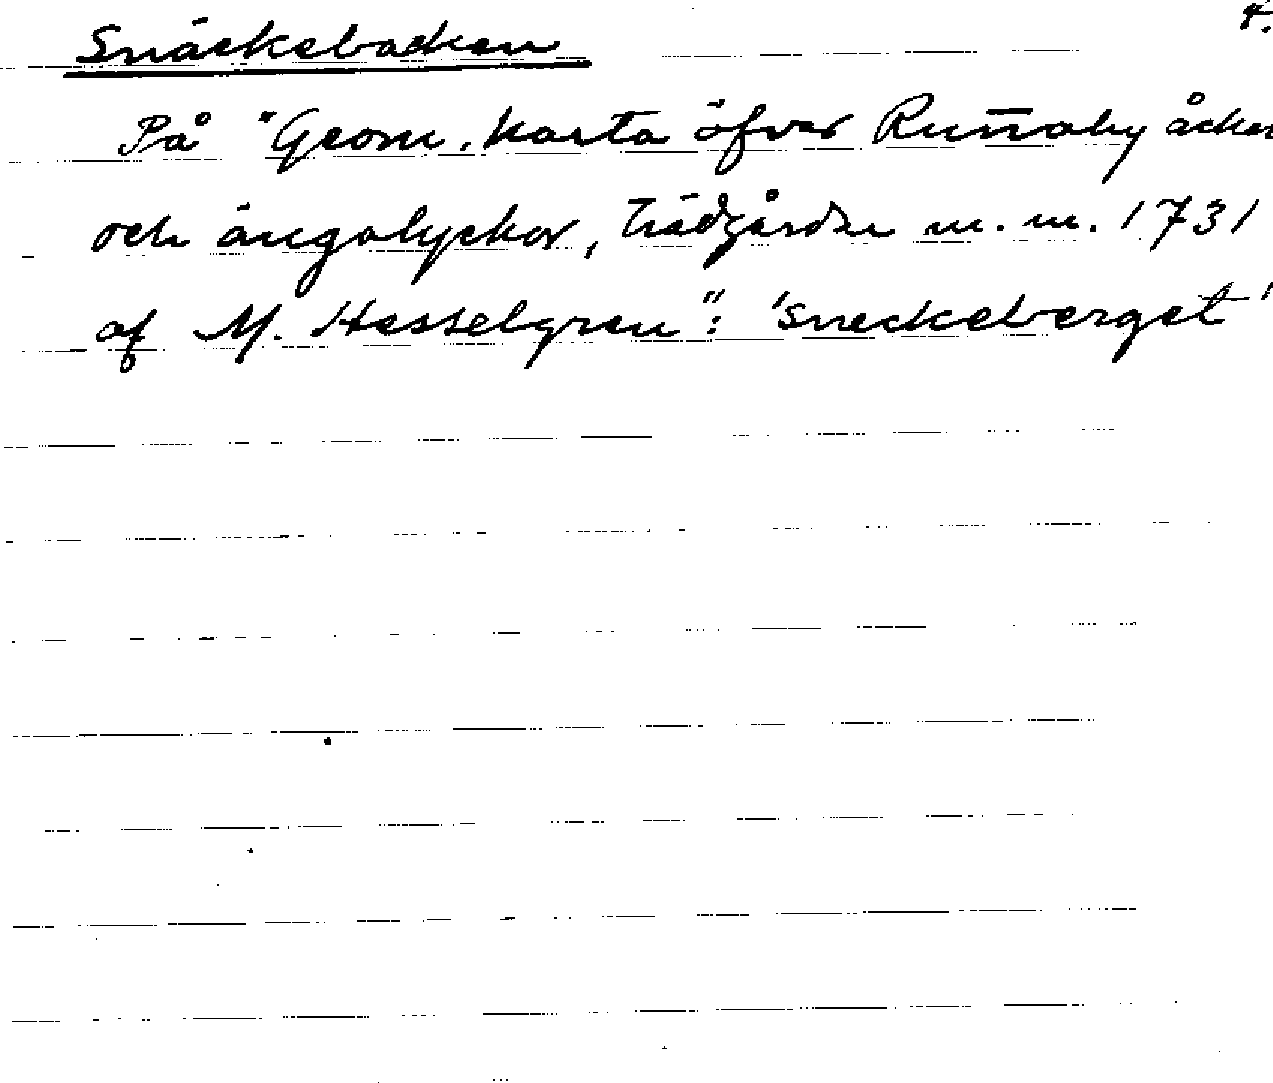 4.
Snäckebacken
På "Geom. Karta öfver Run̄aby åcker
och ängalyckor, trädgårdar m. m. 1731
af M. Hesselgren": 'sneckeberget'